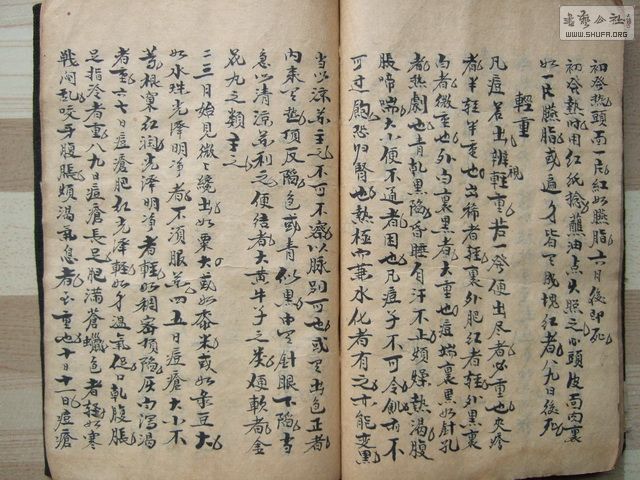 初發熱頭面一片紅如臙脂六日後即死
初發熱時用紅紙捻蘸油点火照之心頭皮肉內裏
如一片臙脂或遍身皆有成塊紅者八九日後死
輕重
凡痘若出辨輕重若一發便出尽者必重也夾疹
者半輕半重也出稀者輕裏外肥紅者輕外黑裏
白者微重也外白裏黑者大重也痘端裏黑如針孔
者熱劇也青乾黑陷昏睡自汗不止煩燥熱渴腹
脹啼喘大小便不通者困也凡痘子不可令飢
可过飽恐归腎也熱極而兼水化者有之亦能變黑
當以涼藥主之不可不審以脉別可也或有出色正者
內素有熱項反陷色或青似黑中有針眼下陷當
急以清涼藥利之便結者大黃牛子之类便軟者金
花丸之類主之
二三日始見微微纔出如粟大或如黍米或如菉豆大
如水珠光澤明淨者不須服藥四五日痘瘡大小不
荖根窠紅潤光澤明淨者輕如稠密項陷灰白瀉渴
者重六七日痘瘡肥紅光澤輕如手溫氣但口乾腹脹
足指冷者重八九日痘瘡長足肥滿蒼蠟色者輕如寒
戰悶乱咬牙腹脹煩渴氣急者重也十日十一日痘瘡
書藝公社
WWW.SHUFA.ORG